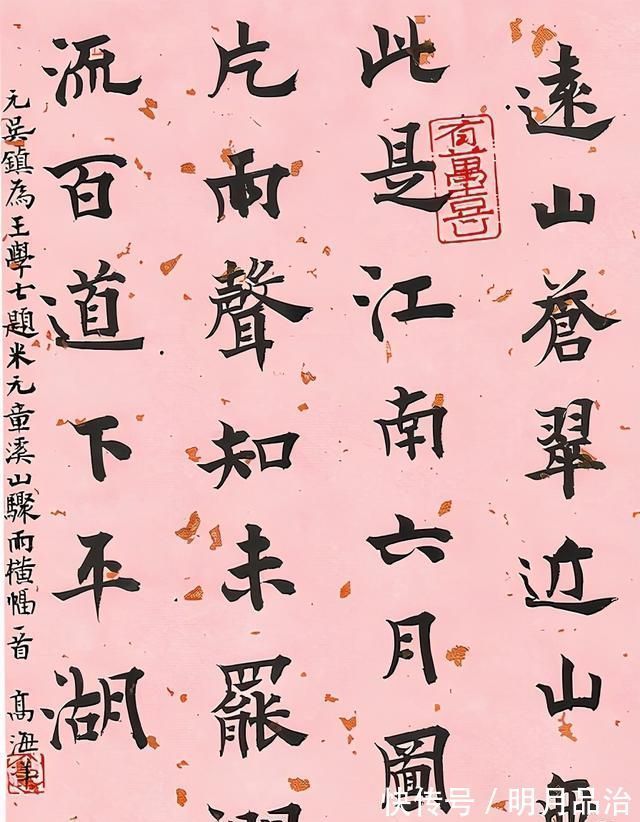 遠山蒼翠近山
此是江南六月圖
片雨聲知未罷
流百道下平湖
元吳鎮為王學士題米元章溪山驟雨橫幅一首 高海
快传号 / 明月品治